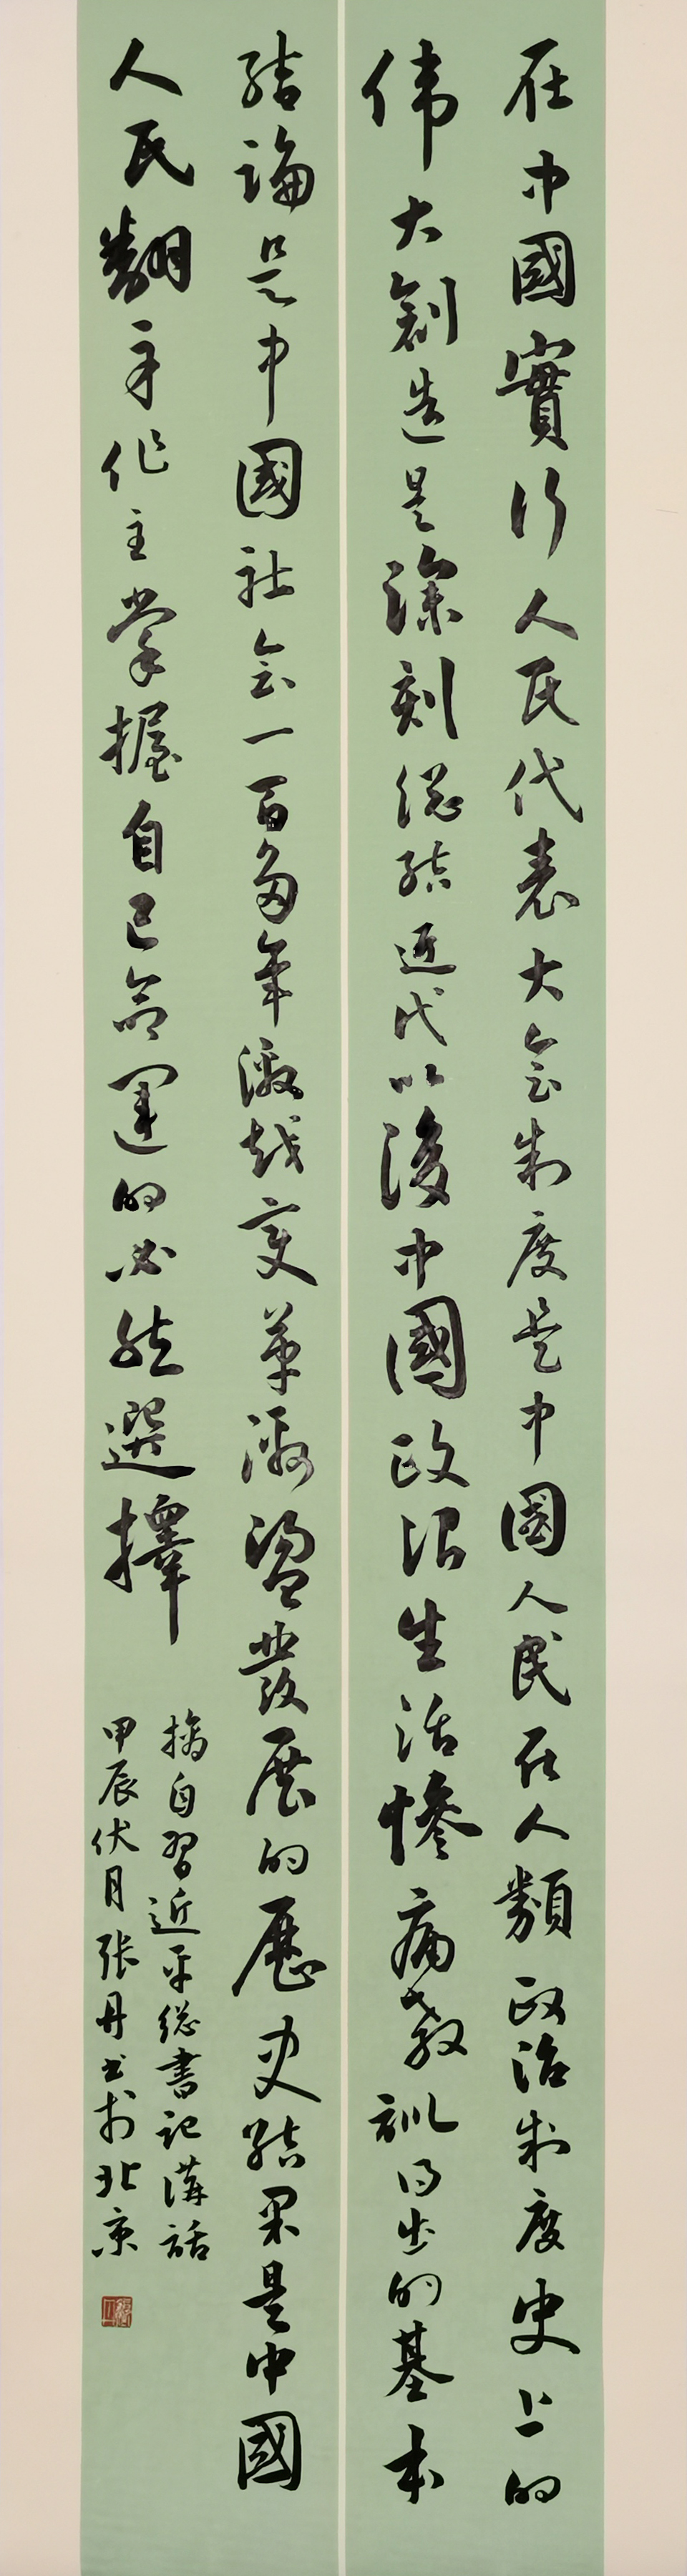 在中國實行人民代表大会制度是中国人民在人類政治制度史上的
伟大創造是深刻総結近代以後中國政治生活惨痛教訓得出的基本
結論是中國社会一百多年激越変革激盪發展的歷史結果是中國
人民翻身作主掌握自己命運的必然選擇
摘自習近平総書記講話
甲辰伏月張丹书於北京